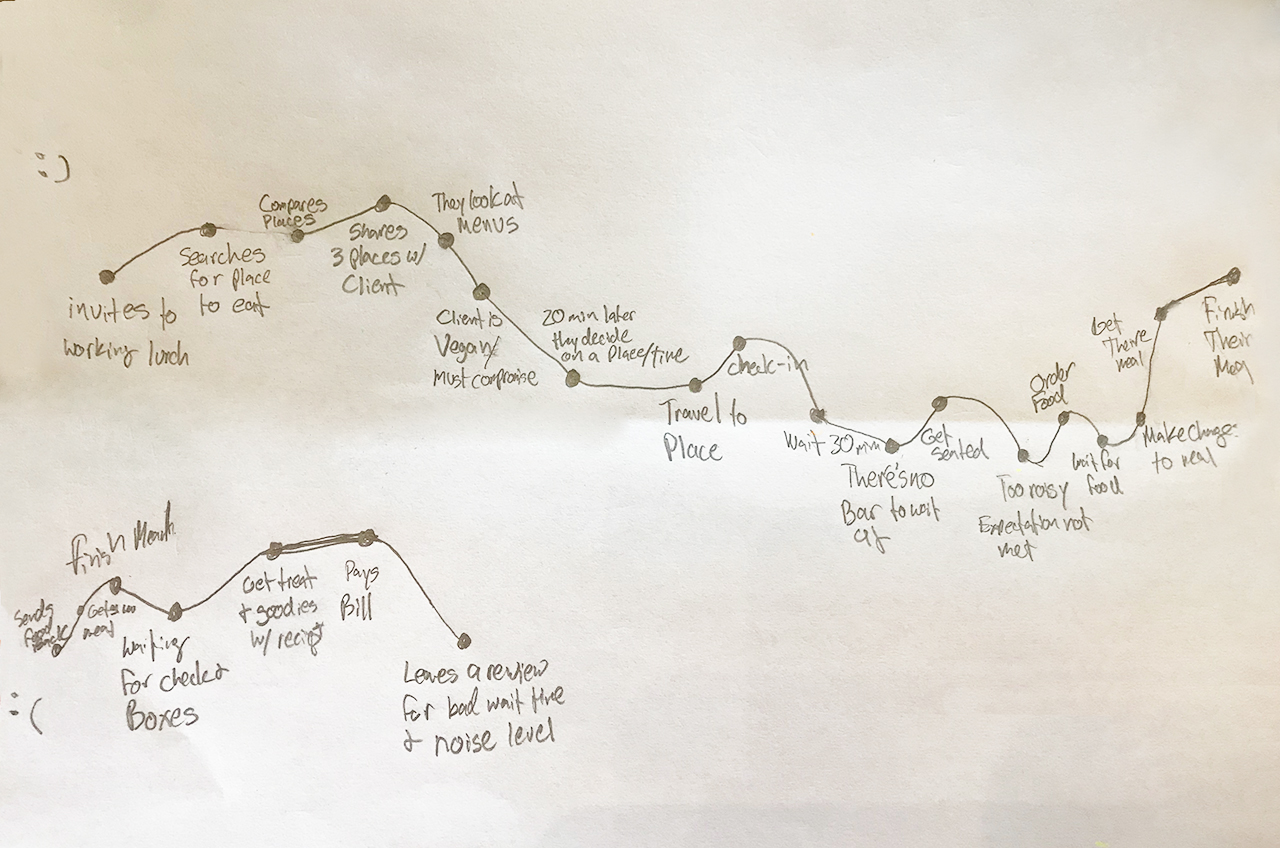 :)
invites to
working lunch
Searches
for place
to eat
Compares
Places
Shares
3 places w/
Client
They look at
Menus
Client is
Vegan/
Must compromise
20 min later
they decide
on a Place/time
Travel to
Place
Check-in
Wait 30 min
There's no
Bar to wait
at
Get
seated
Too noisy
Expectation not
met
Order
Food
Wait for
food
Make change
to meal
Get
Their
meal
Finish
Their
Meal
:(
Sends
food
back
Gets
meal
Finish
Waiting
for check &
Boxes
Get treat
& goodies
w/ recipt
Pays
Bill
Leaves a review
for bad wait time
& noise level